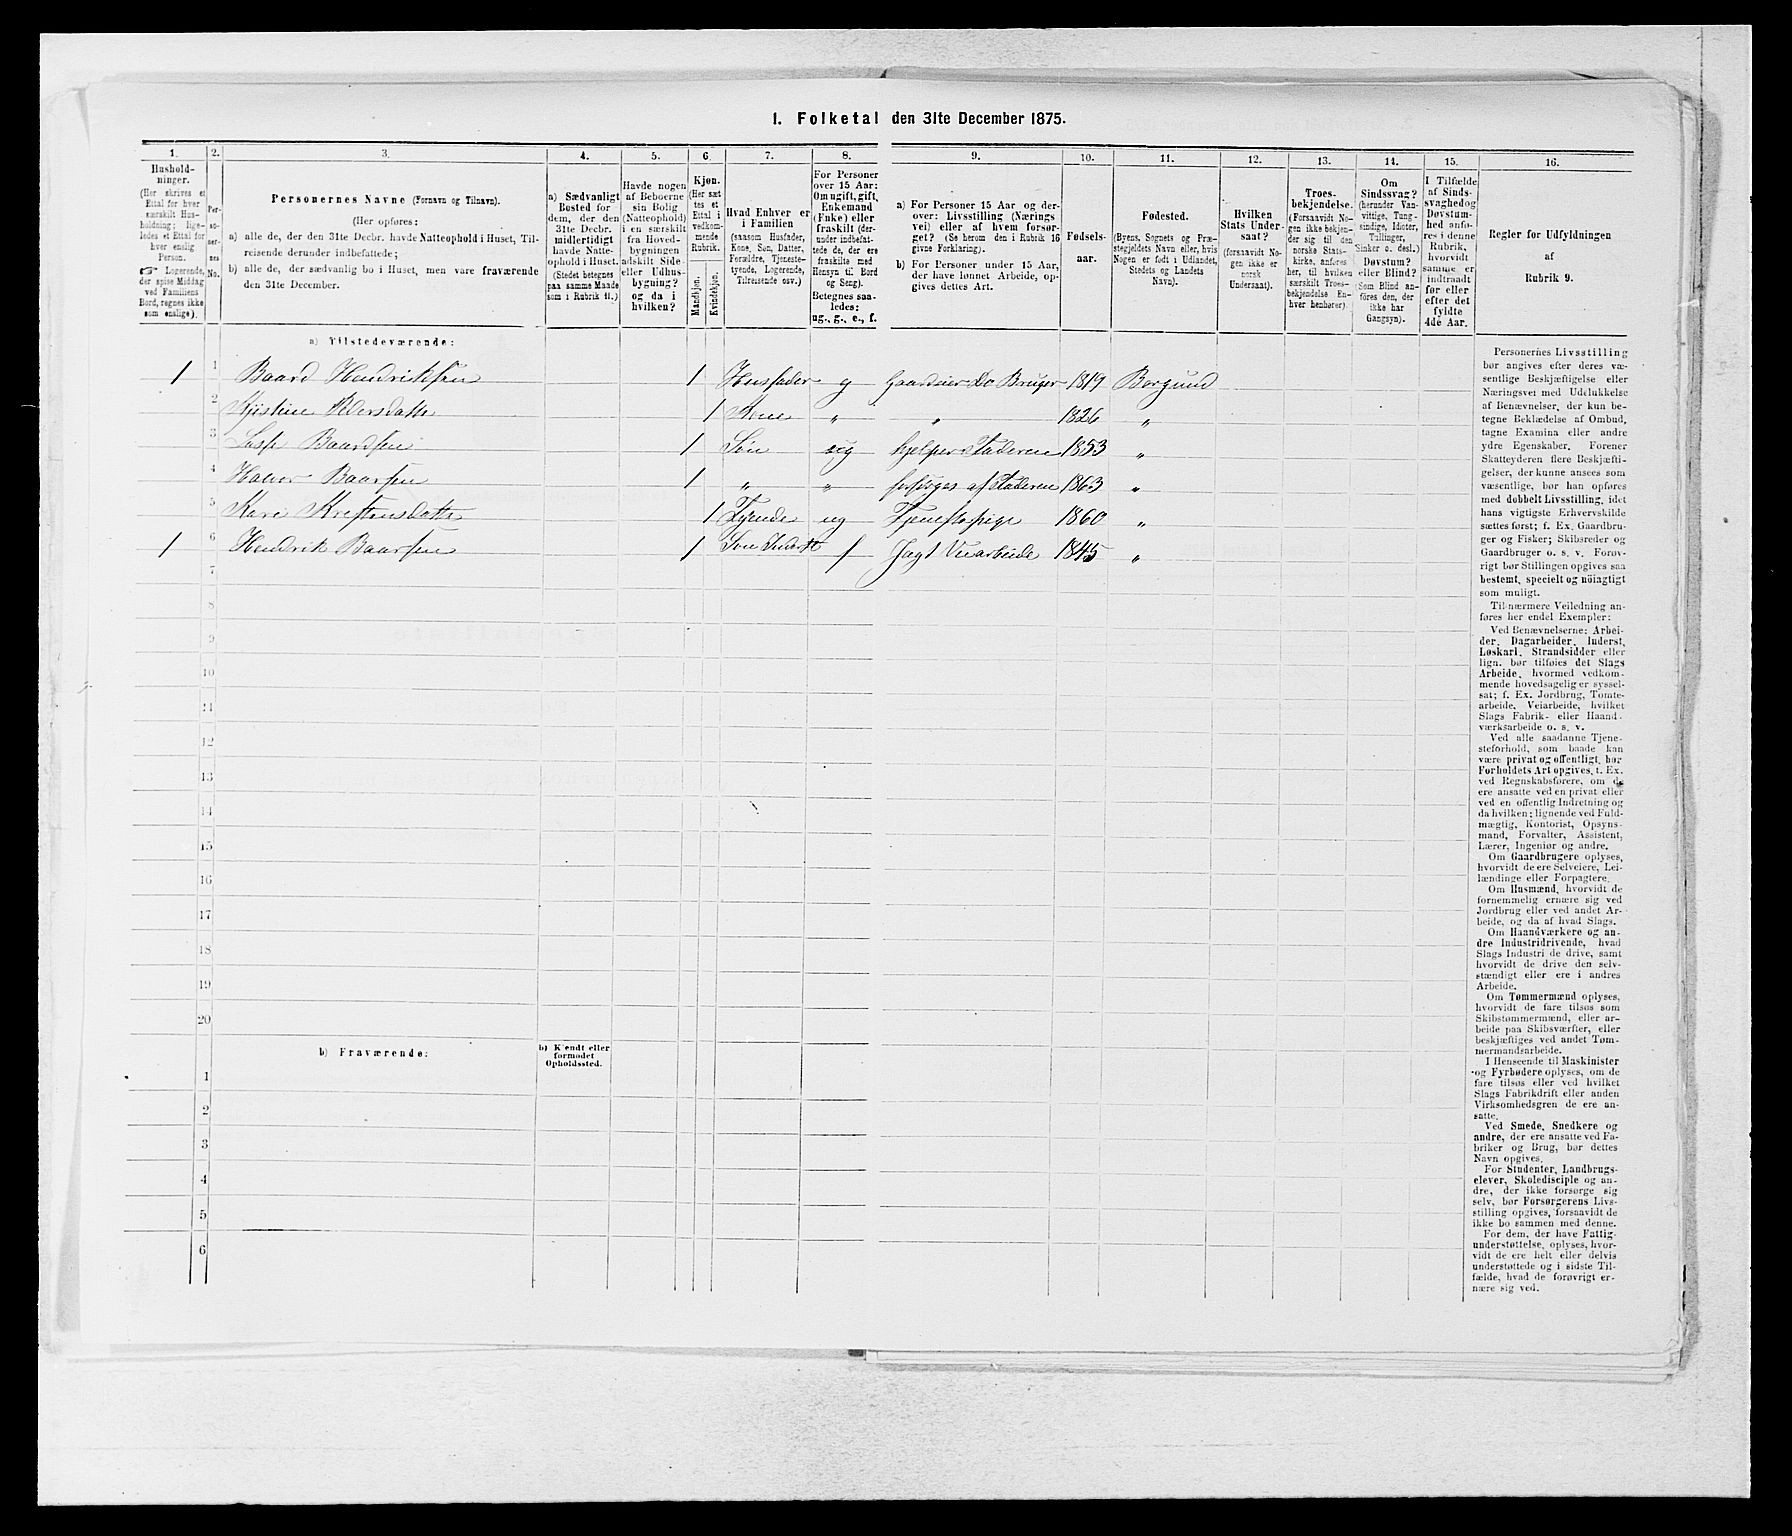 1. Folketal den 31te December 1875.
1.
Hushold-
ninger.
(Her skrives et
Ettal for hver
særskilt Hus-
holdning; lige-
ledes et Ettal for
hver enslig
Person.
☞ Logerende,
der spise Middag
ved Familiens
Bord, regnes ikke
som enslige).
2.
Per-
so-
ner-
nes
No.
3.
Personernes Navne (Fornavn og Tilnavn).
(Her opføres:
a) alle de, der den 31te Decbr. havde Natteophold i Huset, Til-
reisende derunder indbefattede;
b) alle de, der sædvanlig bo i Huset, men vare fraværende
den 31te December.
4.
a) Sædvanligt
Bosted for
dem, der den
31te Decbr.
midlertidigt
havde Natte-
ophold i Huset.
(Stedet betegnes
paa samme Maade
som i Rubrik 11.)
5.
Havde nogen
af Beboerne
sin Bolig
(Natteophold)
i en særskilt
fra Hoved-
bygningen
adskilt Side-
eller Udhus-
bygning?
og da i
hvilken?
6.
Kjøn.
(Her sæt
tes et
Ettal i
vedkom-
mende
Rubrik.
Mandkjøn.
Kvindekjøn.
7.
Hvad Enhver er
i Familien
(saasom Husfader,
Kone, Søn, Datter,
Forældre, Tjeneste-
tyende, Logerende,
Tilreisende osv.)
8.
For Personer
over 15 Aar:
Om ugift, gift,
Enkemand
(Enke) eller
fraskilt (der-
under indbefat-
tede de, der ere
fraskilte med
Hensyn til Bord
og Seng).
Betegnes saa-
ledes:
ug., g., e., f.
9.
a) For Personer 15 Aar og der-
over: Livsstilling (Nærings
vei) eller af hvem forsør-
get? (Se herom den i Rubrik 16
givne Forklaring).
b) For Personer under 15 Aar,
der have lønnet Arbeide, op-
gives dettes Art.
10.
Fødsels-
aar.
11.
Fødested.
(Byens, Sognets og Præ-
stegjeldets Navn eller, hvis
Nogen er født i Udlandet,
Stedets og Landets
Navn).
12.
Hvilken
Stats Under-
saat?
(forsaavidt No-
gen ikke er
norsk
Undersaat).
13.
Troes-
bekjendelse.
(Forsaavidt No-
gen ikke bekjen-
der sig til den
norske Stats-
kirke, anføres
her, til hvilken
særskilt Troes-
bekjendelse En-
hver henhører).
14.
Om
Sindssvag?
(herunder Van-
vittige, Tung-
sindige, Idioter,
Tullinger,
Sinker o. desl.)
Døvstum?
eller Blind?
(Som Blind an-
føres den, der
ikke har
Gangsyn).
15.
I Tilfælde
af Sinds-
svaghed og
Døvstum-
hed anfø-
res i denne
Rubrik,
hvorvidt
samme er
indtraadt
før eller
efter det
fyldte
4de Aar.
16.
Regler for Udfyldningen
af
Rubrik 9.
a) Tilstedeværende:
1 1 Baard Hendriksen 1 Husfader g Gaardeier do Bruger 1819 Borgund
2 Kjistine Pedersdatter 1 Kone " " 1826 "
3 Lasse Baardsen 1 Søn ug hjelper Faderen 1853 "
4 Halvor Baarsen 1 " " forsørges af Faderen 1863 "
5 Kari Kristensdatter 1 Tyende ug Tjenestepige 1860 "
1 6 Hendrik Baarsen 1 Søn Inderst f Veiarbeide 1845 "
7
8
9
10
11
12
13
14
15
16
17
18
19
20
b) Fraværende:
b) Kjendt eller
formodet
Opholdssted.
1
2
3
4
5
6
Personernes Livsstilling
bør angives efter deres væ-
sentlige Beskjæftigelse eller
Næringsvei med Udelukkelse
af Benævnelser, der kun be-
tegne Beklædelse af Ombud,
tagne Examina eller andre
ydre Egenskaber. Forener
Skatteyderen flere Beskjæfti-
gelser, der kunne ansees som
væsentlige, bør han opføres
med dobbelt Livsstilling, idet
hans vigtigste Erhvervskilde
sættes først; f. Ex. Gaardbru-
ger og Fisker; Skibsreder og
Gaardbruger o. s. v. Forøv-
rigt bør Stillingen opgives saa
bestemt, specielt og nöiagtigt
som muligt.
Til nærmere Veiledning an-
føres her endel Exempler:
Ved Benævnelserne: Arbei-
der, Dagarbeider, Inderst,
Løskarl, Strandsidder eller
lign. bør tilføies det Slags
Arbeide, hvormed vedkom-
mende hovedsagelig er syssel-
sat; f. Ex. Jordbrug, Tomte-
arbeide, Veiarbeide, hvilket
Slags Fabrik- eller Haand-
værksarbeide o. s. v.
Ved alle saadanne Tjene-
steforhold, som baade kan
være privat og offentligt, bør
Forholdets Art opgives, t. Ex.
ved Regnskabsførere, om de
ere ansatte ved en privat eller
ved en offentlig Indretning og
da hvilken; lignende ved Fuld-
mægtig, Kontorist, Opsyns-
mand, Forvalter, Assistent,
Lærer, Ingeniør og andre.
Om Gaardbrugere oplyses,
hvorvidt de ere Selveiere, Lei-
lændinge eller Forpagtere.
Om Husmænd, hvorvidt de
fornemmelig ernære sig ved
Jordbrug eller ved andet Ar-
beide, og da af hvad Slags.
Om Haandværkere og an-
dre Industridrivende, hvad
Slags Industri de drive, samt
hvorvidt de drive den selv-
stændigt eller ere i andres
Arbeide.
Om Tømmermænd oplyses,
hvorvidt de fare tilsøs som
Skibstømmermænd, eller ar-
beide paa Skibsværfter, eller
beskjæftiges ved andet Tøm-
mermandsarbeide.
I Henseende til Maskinister
og Fyrbødere oplyses, om de
fare tilsøs eller ved hvilket
Slags Fabrikdrift eller anden
Virksomhedsgren de ere an-
satte.
Ved Smede, Snedkere og
andre, der ere ansatte ved Fa-
briker og Brug, bør dettes
Navn opgives.
For Studenter, Landbrugs-
elever, Skoledisciple og an-
dre, der ikke forsørge sig
selv, bør Forsørgerens Livs-
stilling opgives, forsaavidt de
ikke bo sammen med denne.
For dem, der have Fattig-
understøttelse, oplyses, hvor-
vidt de ere helt eller delvis
understøttede og i sidste Til-
fælde, hvad de forøvrigt er-
nære sig ved.